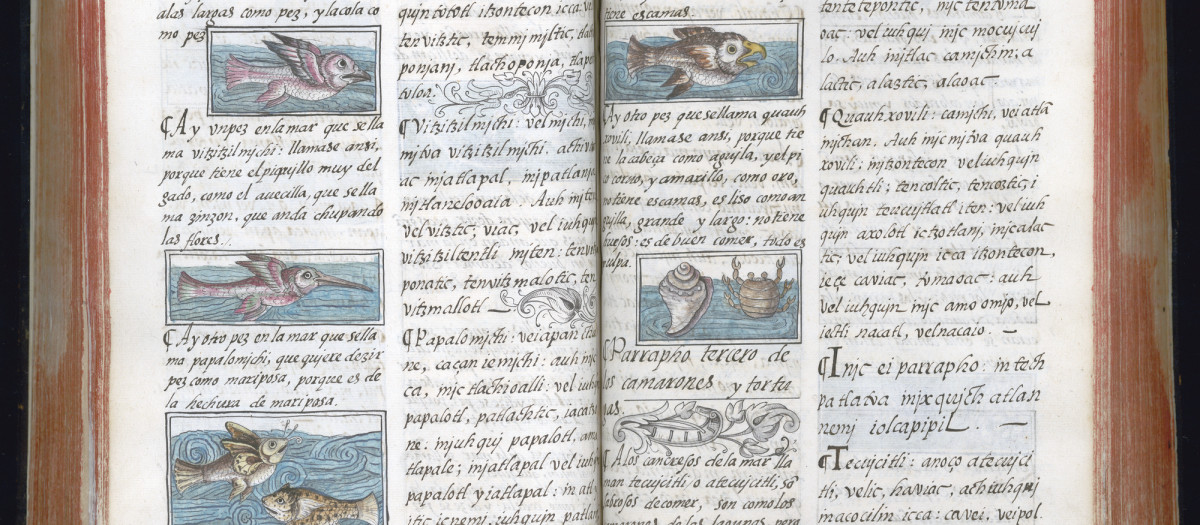 alas largas como pez, y la cola co
mo pez
¶ Ay vn pez en la mar que se lla
ma vitzitzilmichi: llamase ansi,
porque tiene el piquillo muy del
gado, como el auecilla, que se lla
ma zinzon, que anda chupando
las flores.
¶ Ay otro pez en la mar que se lla
ma papalomichi, que quiere dezir
pez como mariposa, porque es de
la hechura de mariposa.
quintototl itzontecon icca: ve
tenvitztic, temmimiltic,
ponjanj, tlachoponja,
toloa.
¶ Vitzitzilmichi: vel michi,
mitoa vitzitzilmichi:
ac injatlapal,
Auh
vel vitztic; viac, vel iuhq
vitzitziltentli inten:
ponatic, tenvitzmalotic, ten
vitzmallotl
¶ Papalomichi: vei apan
ne, caçan ie michi: auh inic
ca, injc tlachioalli: vel iuh
papalotl, patlachtic,
ne: iniuhqui papalotl,
tlapale; injatlapal vel iuh
papalotl yiatlapal: in
itic ic nemi: iuhquin
tiene escamas
Ay otro pez que se llama quauh
xouili, llamase ansi, porque tie
ne la cabeça como aguila, y el pi
co coruo, y amarillo, como oro,
no tiene escamas, es liso como an
guilla, grande y largo: no tiene
huesos: es de buen comer, todo es
pulpa.
¶ Parrapho tercero, de
los camarones y tortu
gas.
¶ A los cangrejos de la mar lla
man tecuicitli o atecuicitli, sõ
sabrosos de comer, son como los
camarones de las lagunas, pero
tentetepontic, injc tentvma
oac: vel iuhqui injc mocuicui
lo. Auh injtlac çamjchin; a
lactic, alaztic, alaoac.
¶ Quauhxouili: çamjchi, vei atlã
njchan. Auh injc mitoa quauh
xouili: injtzontecon vel iuhqujn
quauhtli; tencoltic, tencoztic; i
uhqujn teucuitlatl iten: vel iuh
qujn axolotl ietzotlanj, injc alac
tic; vel iuhqujn icca itzontecon,
ieçe cauiac, Amaoac: auh
vel iuhqujn injc amo omijo, vel
iestli nacatl, vel nacaio.
¶ Injc ei parrapho: intech
patlatoa mixqujch atlan
nemj iolcapipil.
¶ Tecujcitli: anoço atecuici
tli, velic, haviac, achi iuhquj
macocilin icca: cavei, vei pol.